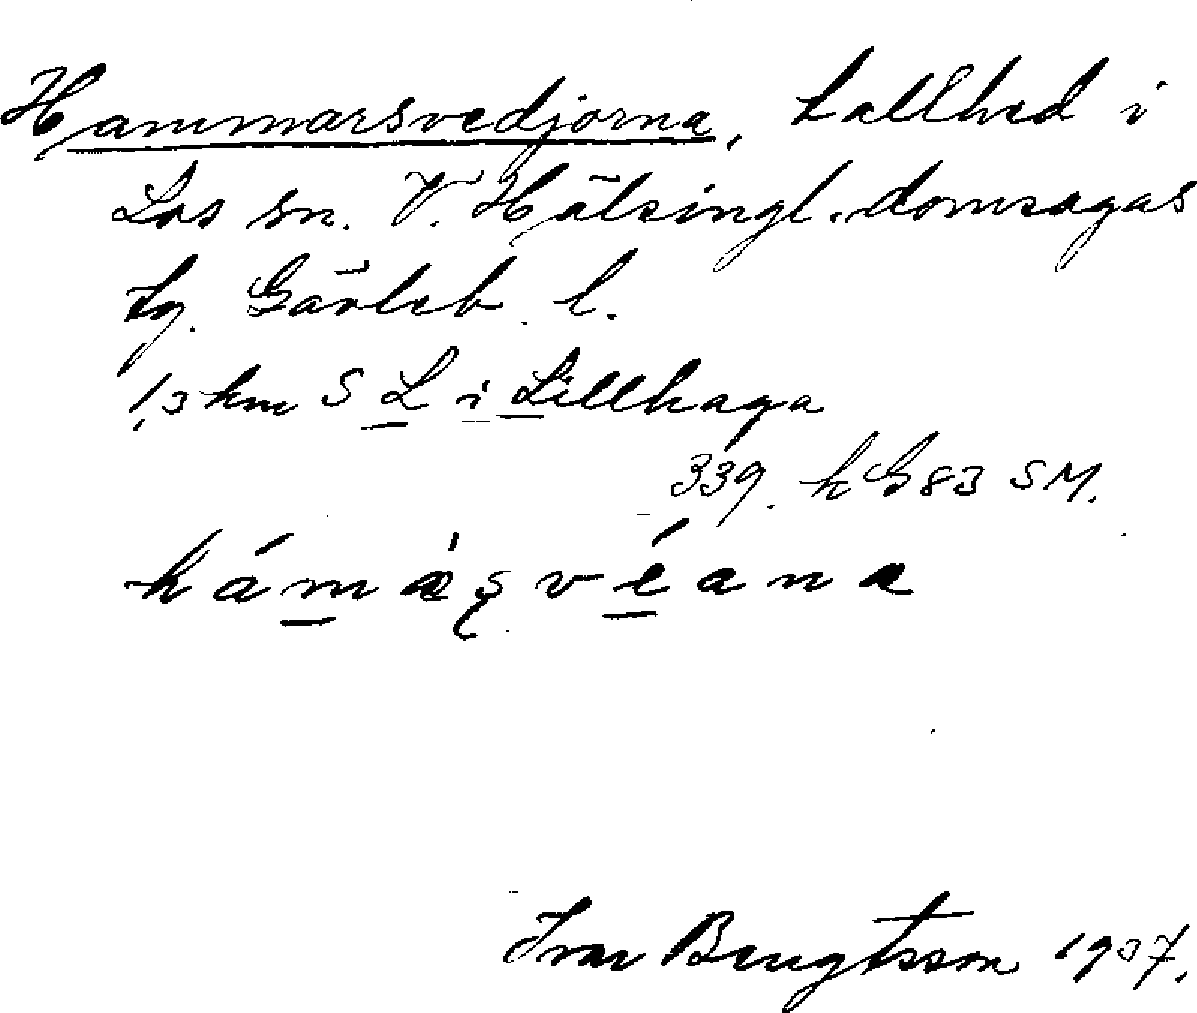 Hammarsvedjorna, tallhed i
Los sn. V. Hälsingl. domsagas
tg. Gävleb. l.
1,3 km S L i Lillhaga
339. h G 83 SM.
Ivar Bengtsson 1937.